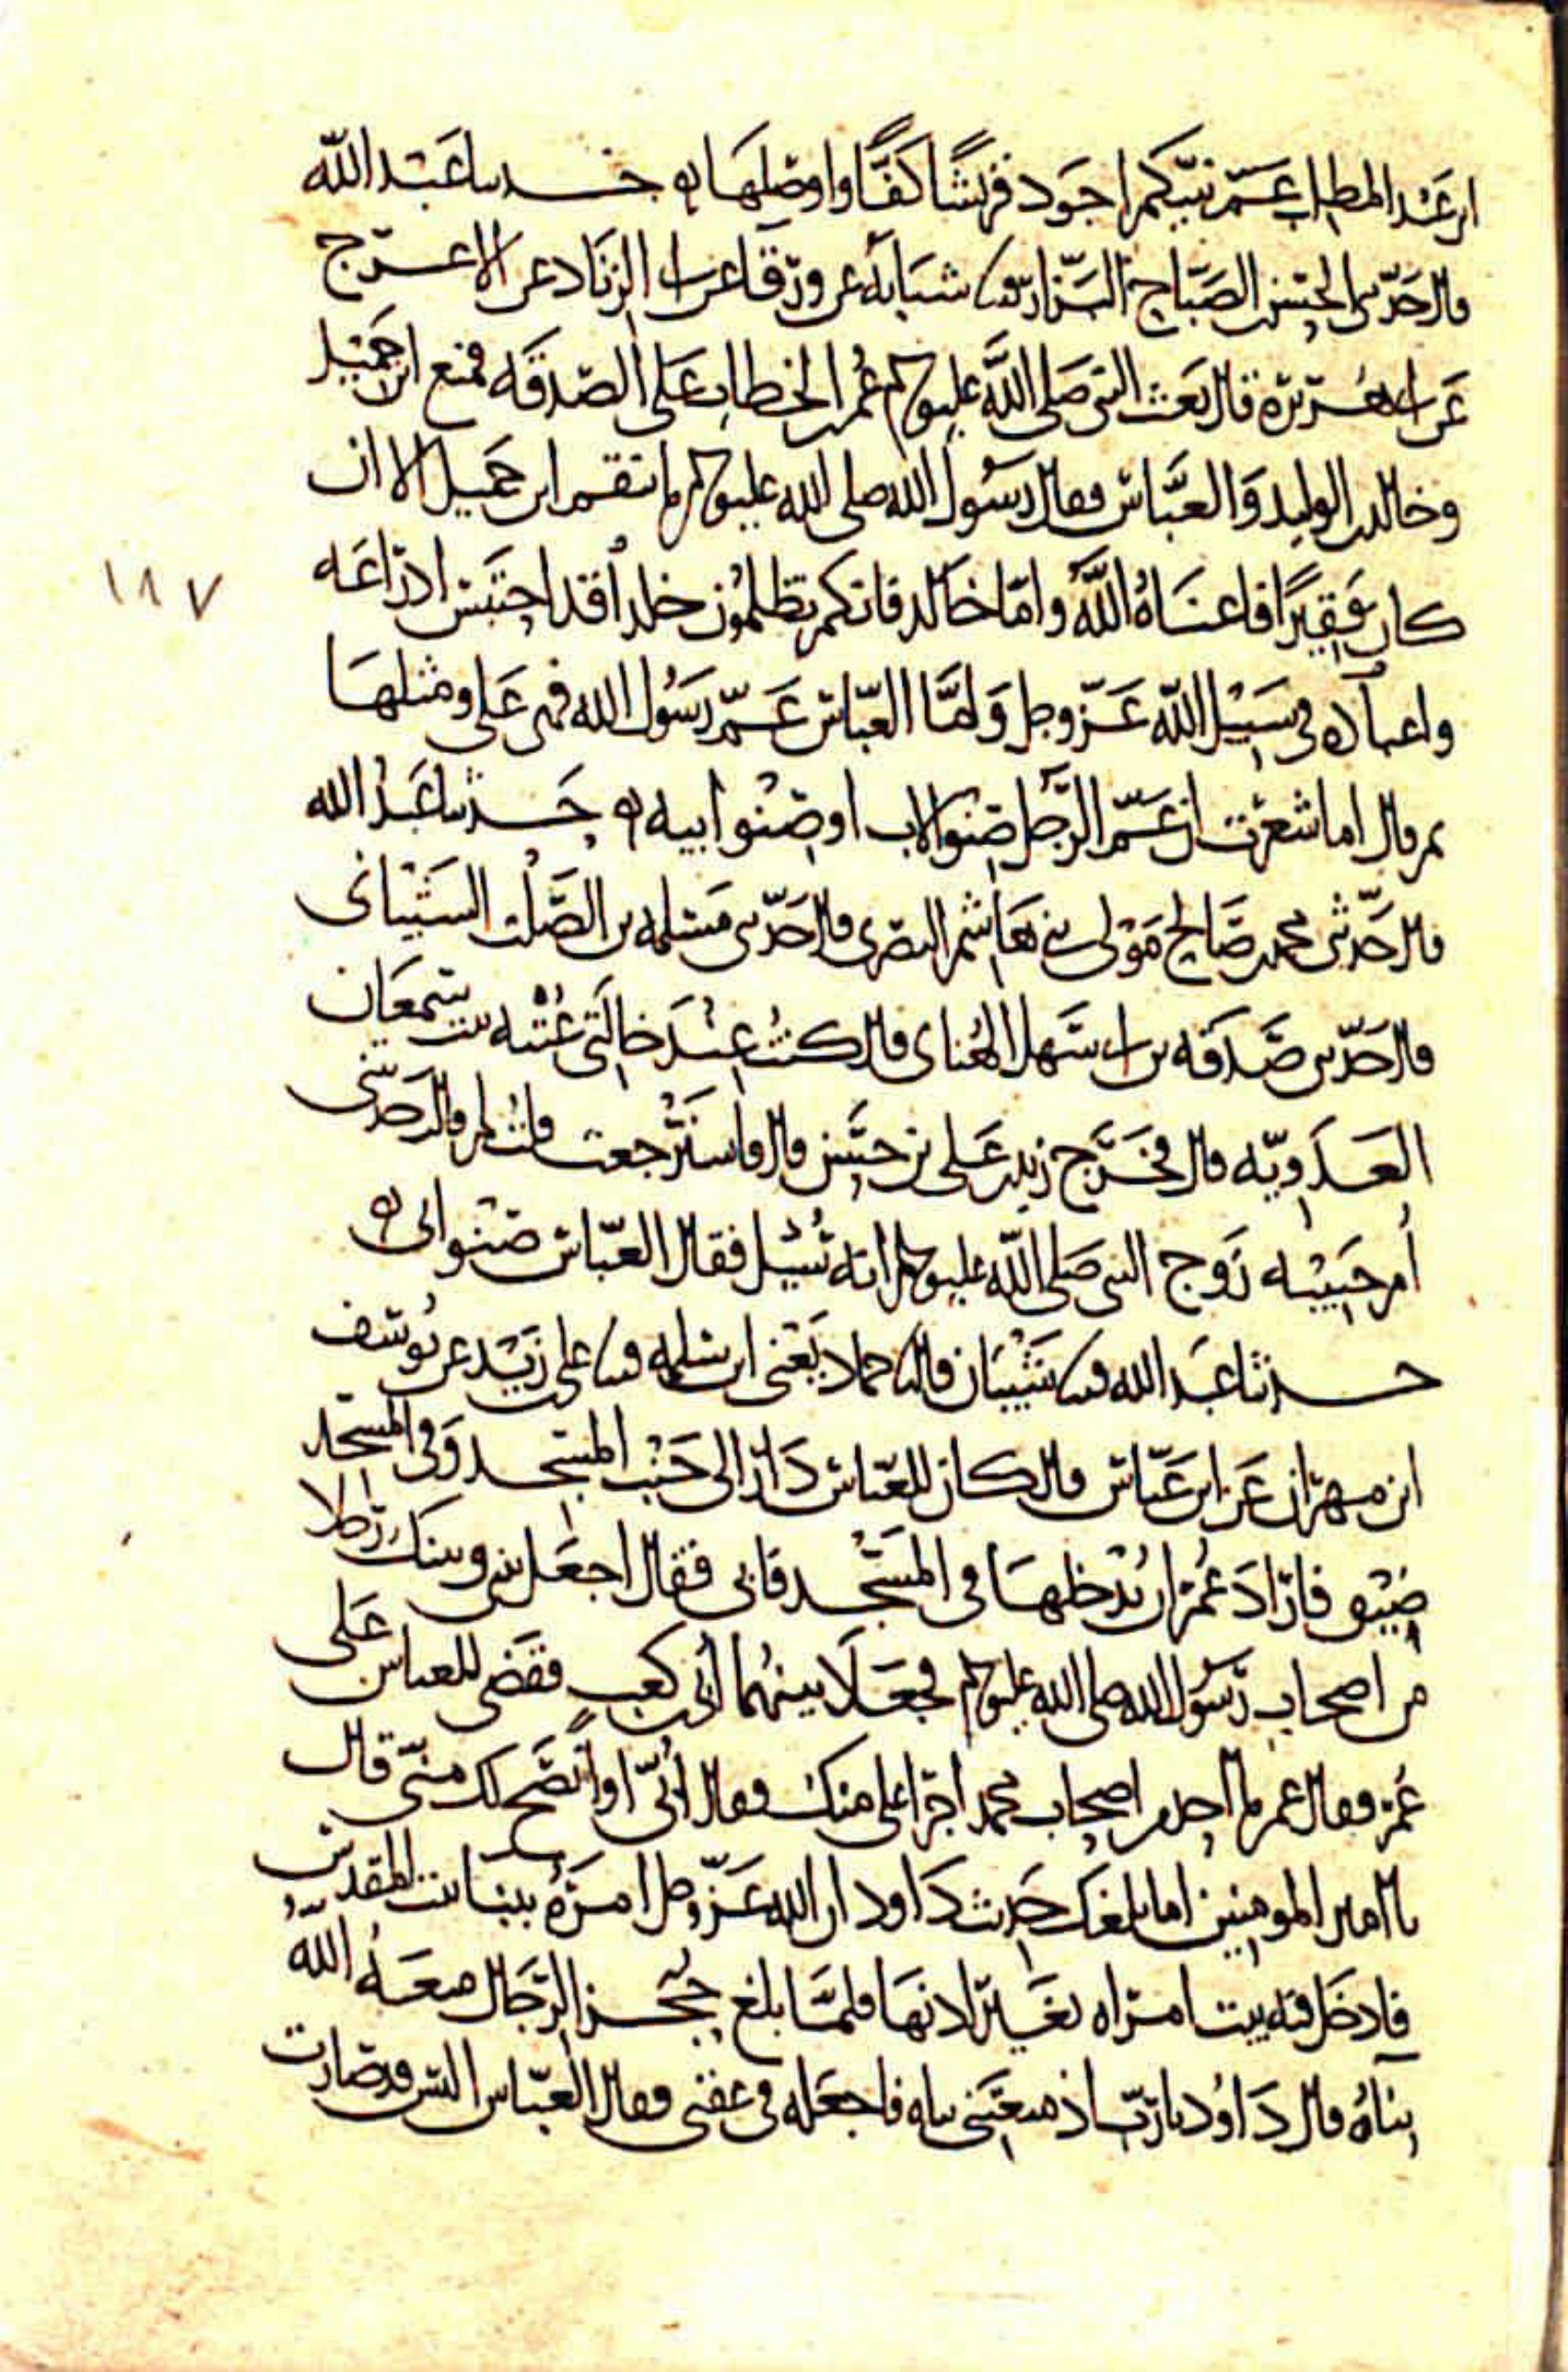 ابن عبد المطلب عم نبيكم اجود قريش كفا واوصلها ه حدثنا عبد الله
قال حدثني الحسن بن الصباح البزار قثنا شبابة عن ورقا عن ابي الزناد عن الاعرج
عن ابي هريرة قال بعث النبي صلى الله عليه وسلم عمر بن الخطاب على الصدقه فمنع ابن جميل
وخالد بن الوليد والعباس فقال رسول الله صلى الله عليه وسلم ما نقم ابن جميل الا ان
كان فقيرا فاغناه الله واما خالد فانكم تظلمون خالدا قد احتبس ادراعه
واعتاده في سبيل الله عز وجل واما العباس عم رسول الله فهي علي ومثلها
ثم قال اما شعرت ان عم الرجل صنو الاب او صنو ابيه ه حدثنا عبد الله
قال حدثني محمد بن صالح مولى بني هاشم البصري قال حدثني مسلمه بن الصلت الشيباني
قال حدثني صدقه بن ابي سهل الهنائي قال كنت عند خالتي عتبه بنت سمعان
العدويه قال فخرج زيد بن علي بن حسين قال فاسترجعت قلت لم قال حدثتني
ام حبيبه زوج النبي صلى الله عليه وسلم انه سئل فقال العباس صنو ابي ه
حدثنا عبد الله قثنا شيبان قال نا حماد يعني ابن سلمه قثنا علي بن زيد عن يوسف
ابن مهران عن ابن عباس قال كان للعباس دار الى جنب المسجد وفي المسجد
ضيق فاراد عمر ان يدخلها في المسجد فابى فقال اجعل بيني وبينك رجلا
من اصحاب رسول الله صلى الله عليه وسلم فجعلا بينهما ابي بن كعب فقضى للعباس على
عمر فقال عمر ما احد من اصحاب محمد اجرا علي منك فقال ابي او انصح لك مني قال
يا امير المومنين اما بلغك حديث داود ان الله عز وجل امره ببنا بيت المقدس
فادخل فيه بيت امراه بغير اذنها فلما بلغ حجز الرجال منعه الله
بناه قال داود يا رب اذ منعتني بناه فاجعله في عقبي فقال العباس اليس قد صارت
١٨٧